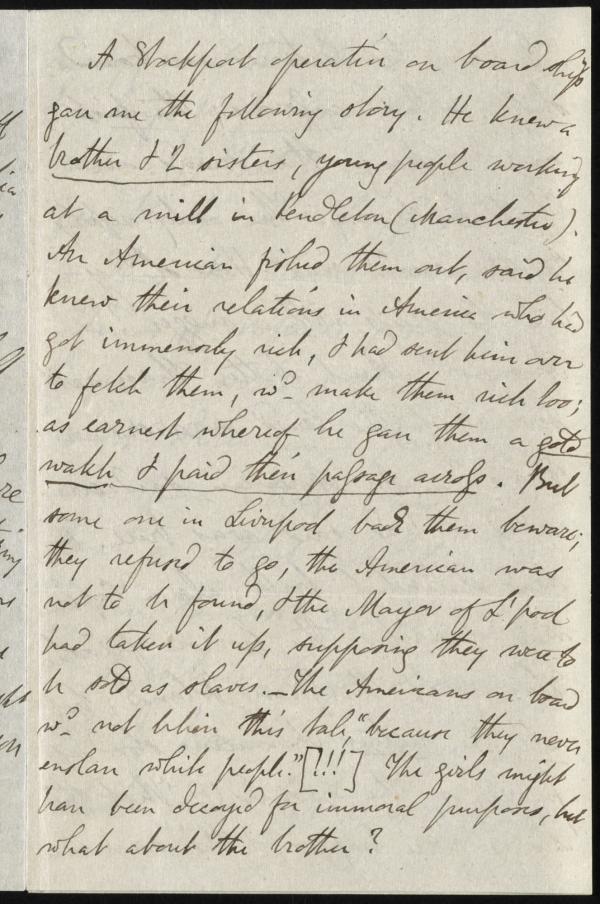 A Stockport operative on board ship
gave me the following story. He knew a
brother & 2 sisters, young people working
at a mill in Pendleton (Manchester).
An American fished them out, said he
knew their relations in America who had
got immensely rich, & had sent him over
to fetch them, wd. make them rich too;
as earnest whereof he gave them a gold
watch & paid their passage across. But
some one in Liverpool bade them beware;
they refused to go, the American was
not to be found, & the Mayor of L'pool
had taken it up, supposing they were to
be sold as slaves. — The Americans on board
wd. not believe this tale, "because they never
enslave white people." [!!!] The girls might
have been decoyed for immoral purposes, but
what about the brother?